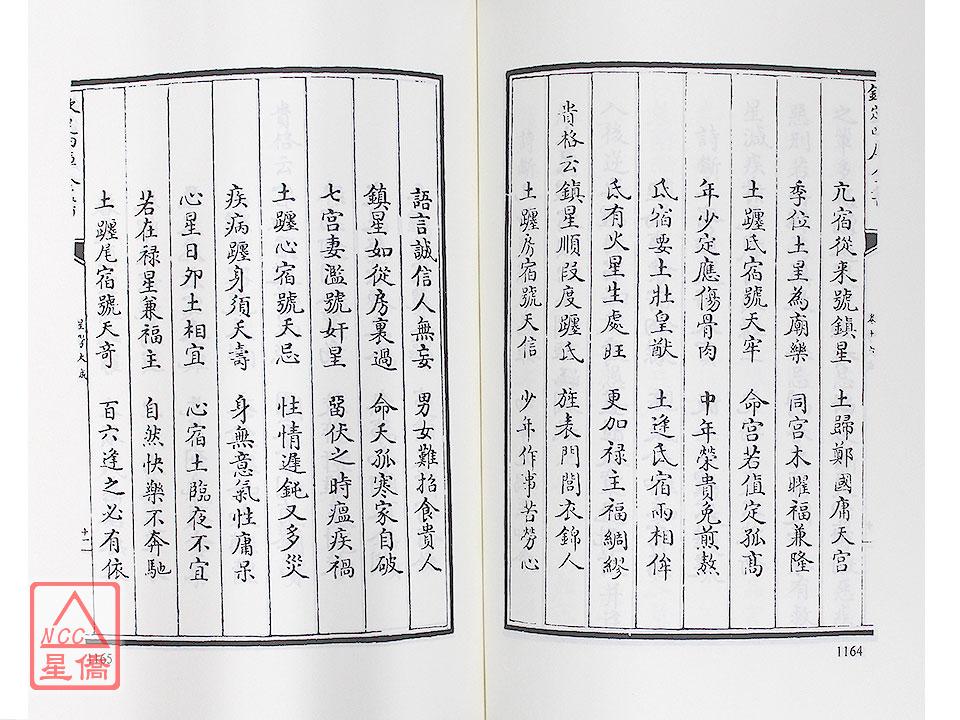 亢宿從來號鎮星　土歸鄭國庸天宮
季位土星為廟樂　同宮木曜福兼隆
土躔氐宿號天牢　命宮若值定孤高
年少定應傷骨肉　中年榮貴免煎熬
氐宿要土壯皇猷　土逢氐宿兩相侔
氐有火星生處旺　更加祿主福綢繆
貴格云鎮星順段度躔氐　旌表門閭衣錦人
土躔房宿號天信　少年作事苦勞心
1164
語言誠信人無妄　男女難招食貴人
鎮星如從房裏過　命夭孤寒家自破
七宮妻濫號奸星　留伏之時瘟疾禍
土躔心宿號天忌　性情遲鈍又多災
疾病躔身須夭壽　身無意氣性庸呆
心星日夘土相宜　心宿土臨夜不宜
若在禄星兼福主　自然快樂不奔馳
土躔尾宿號天奇　百六逢之必有依
星學大成
十一
1165
NCC
星僑